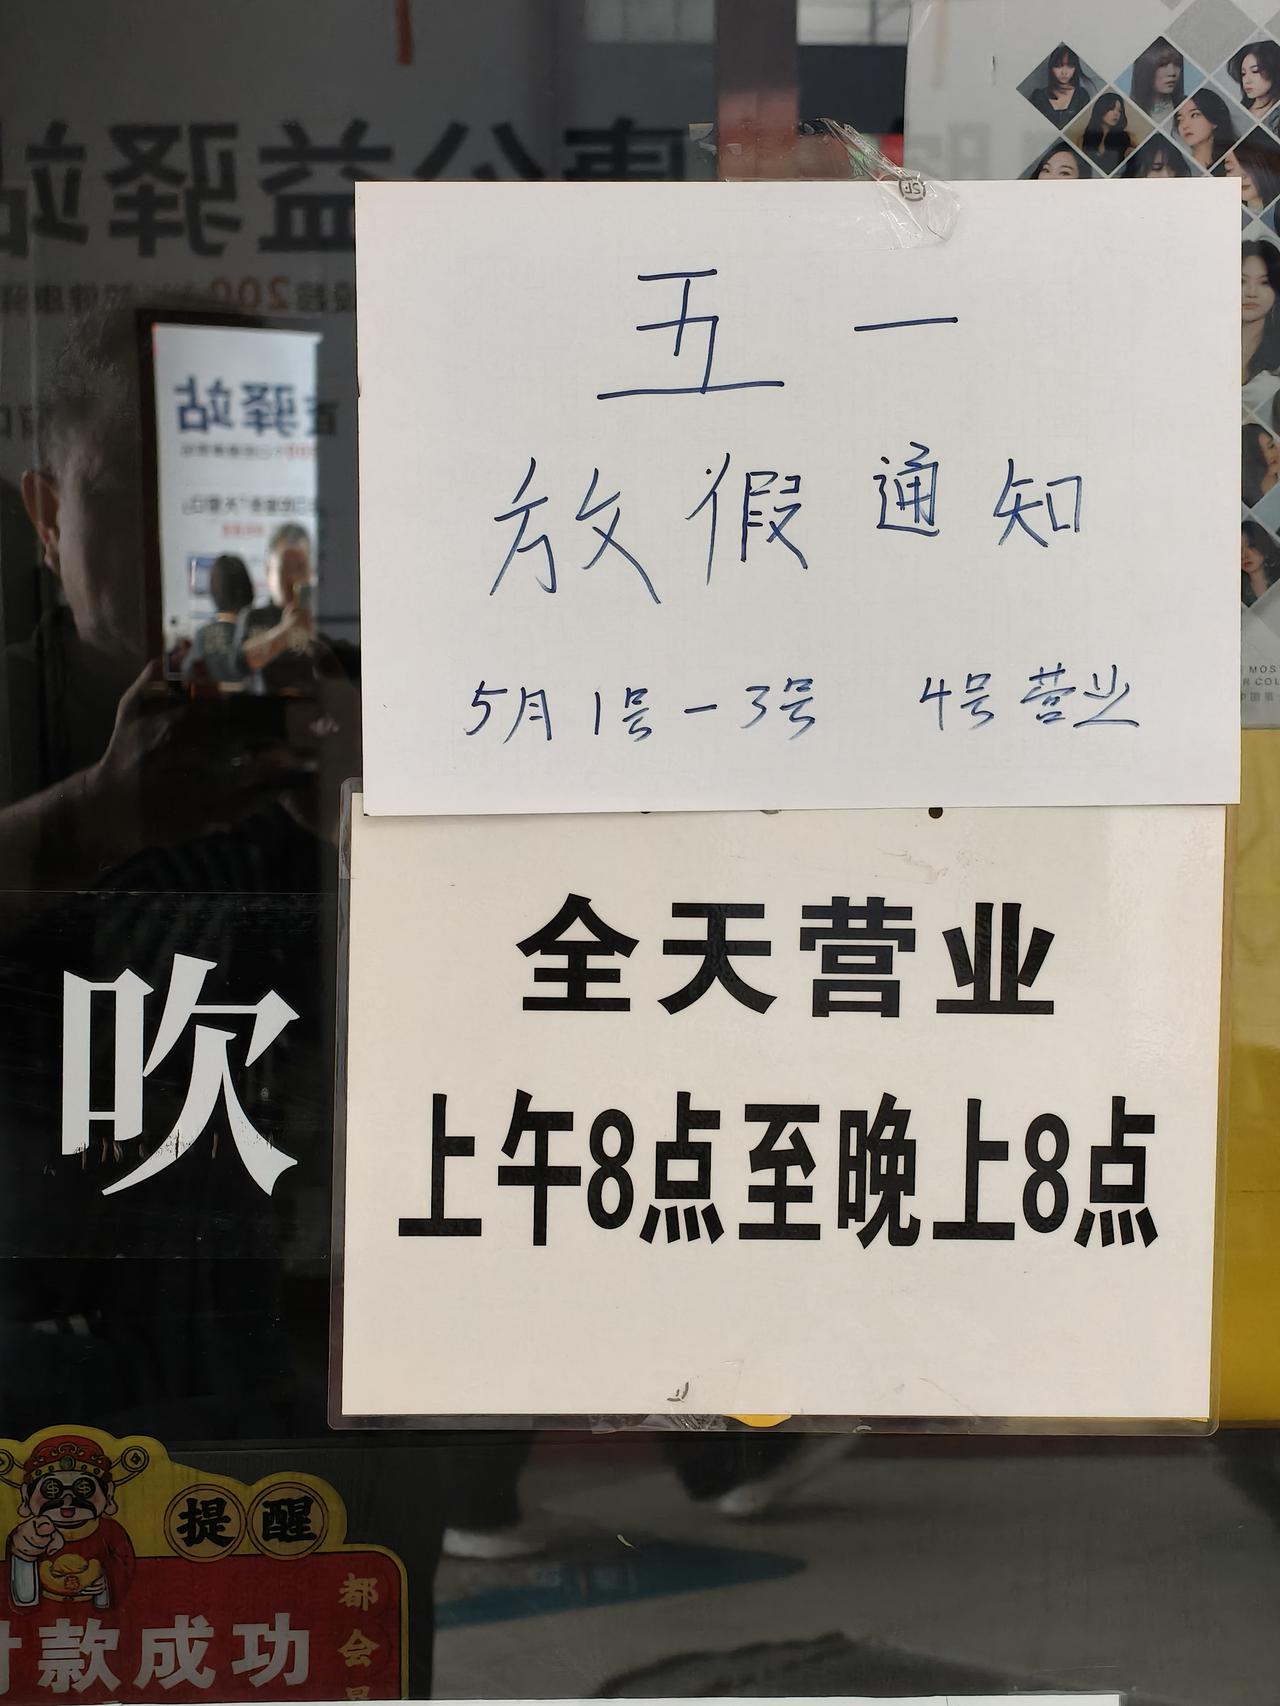 五一
放假通知
5月1号-3号 4号营业
全天营业
上午8点至晚上8点
吹
提醒
都会
款成功
公益驿站
200
驿站